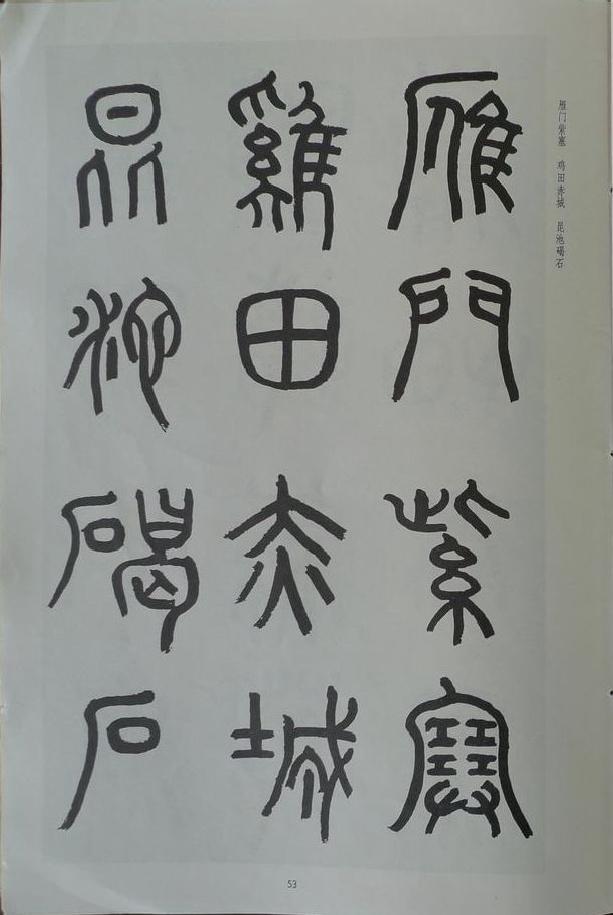 雁門紫塞
雞田赤城
昆池碣石
雁门紫塞 鸡田赤城 昆池碣石
53